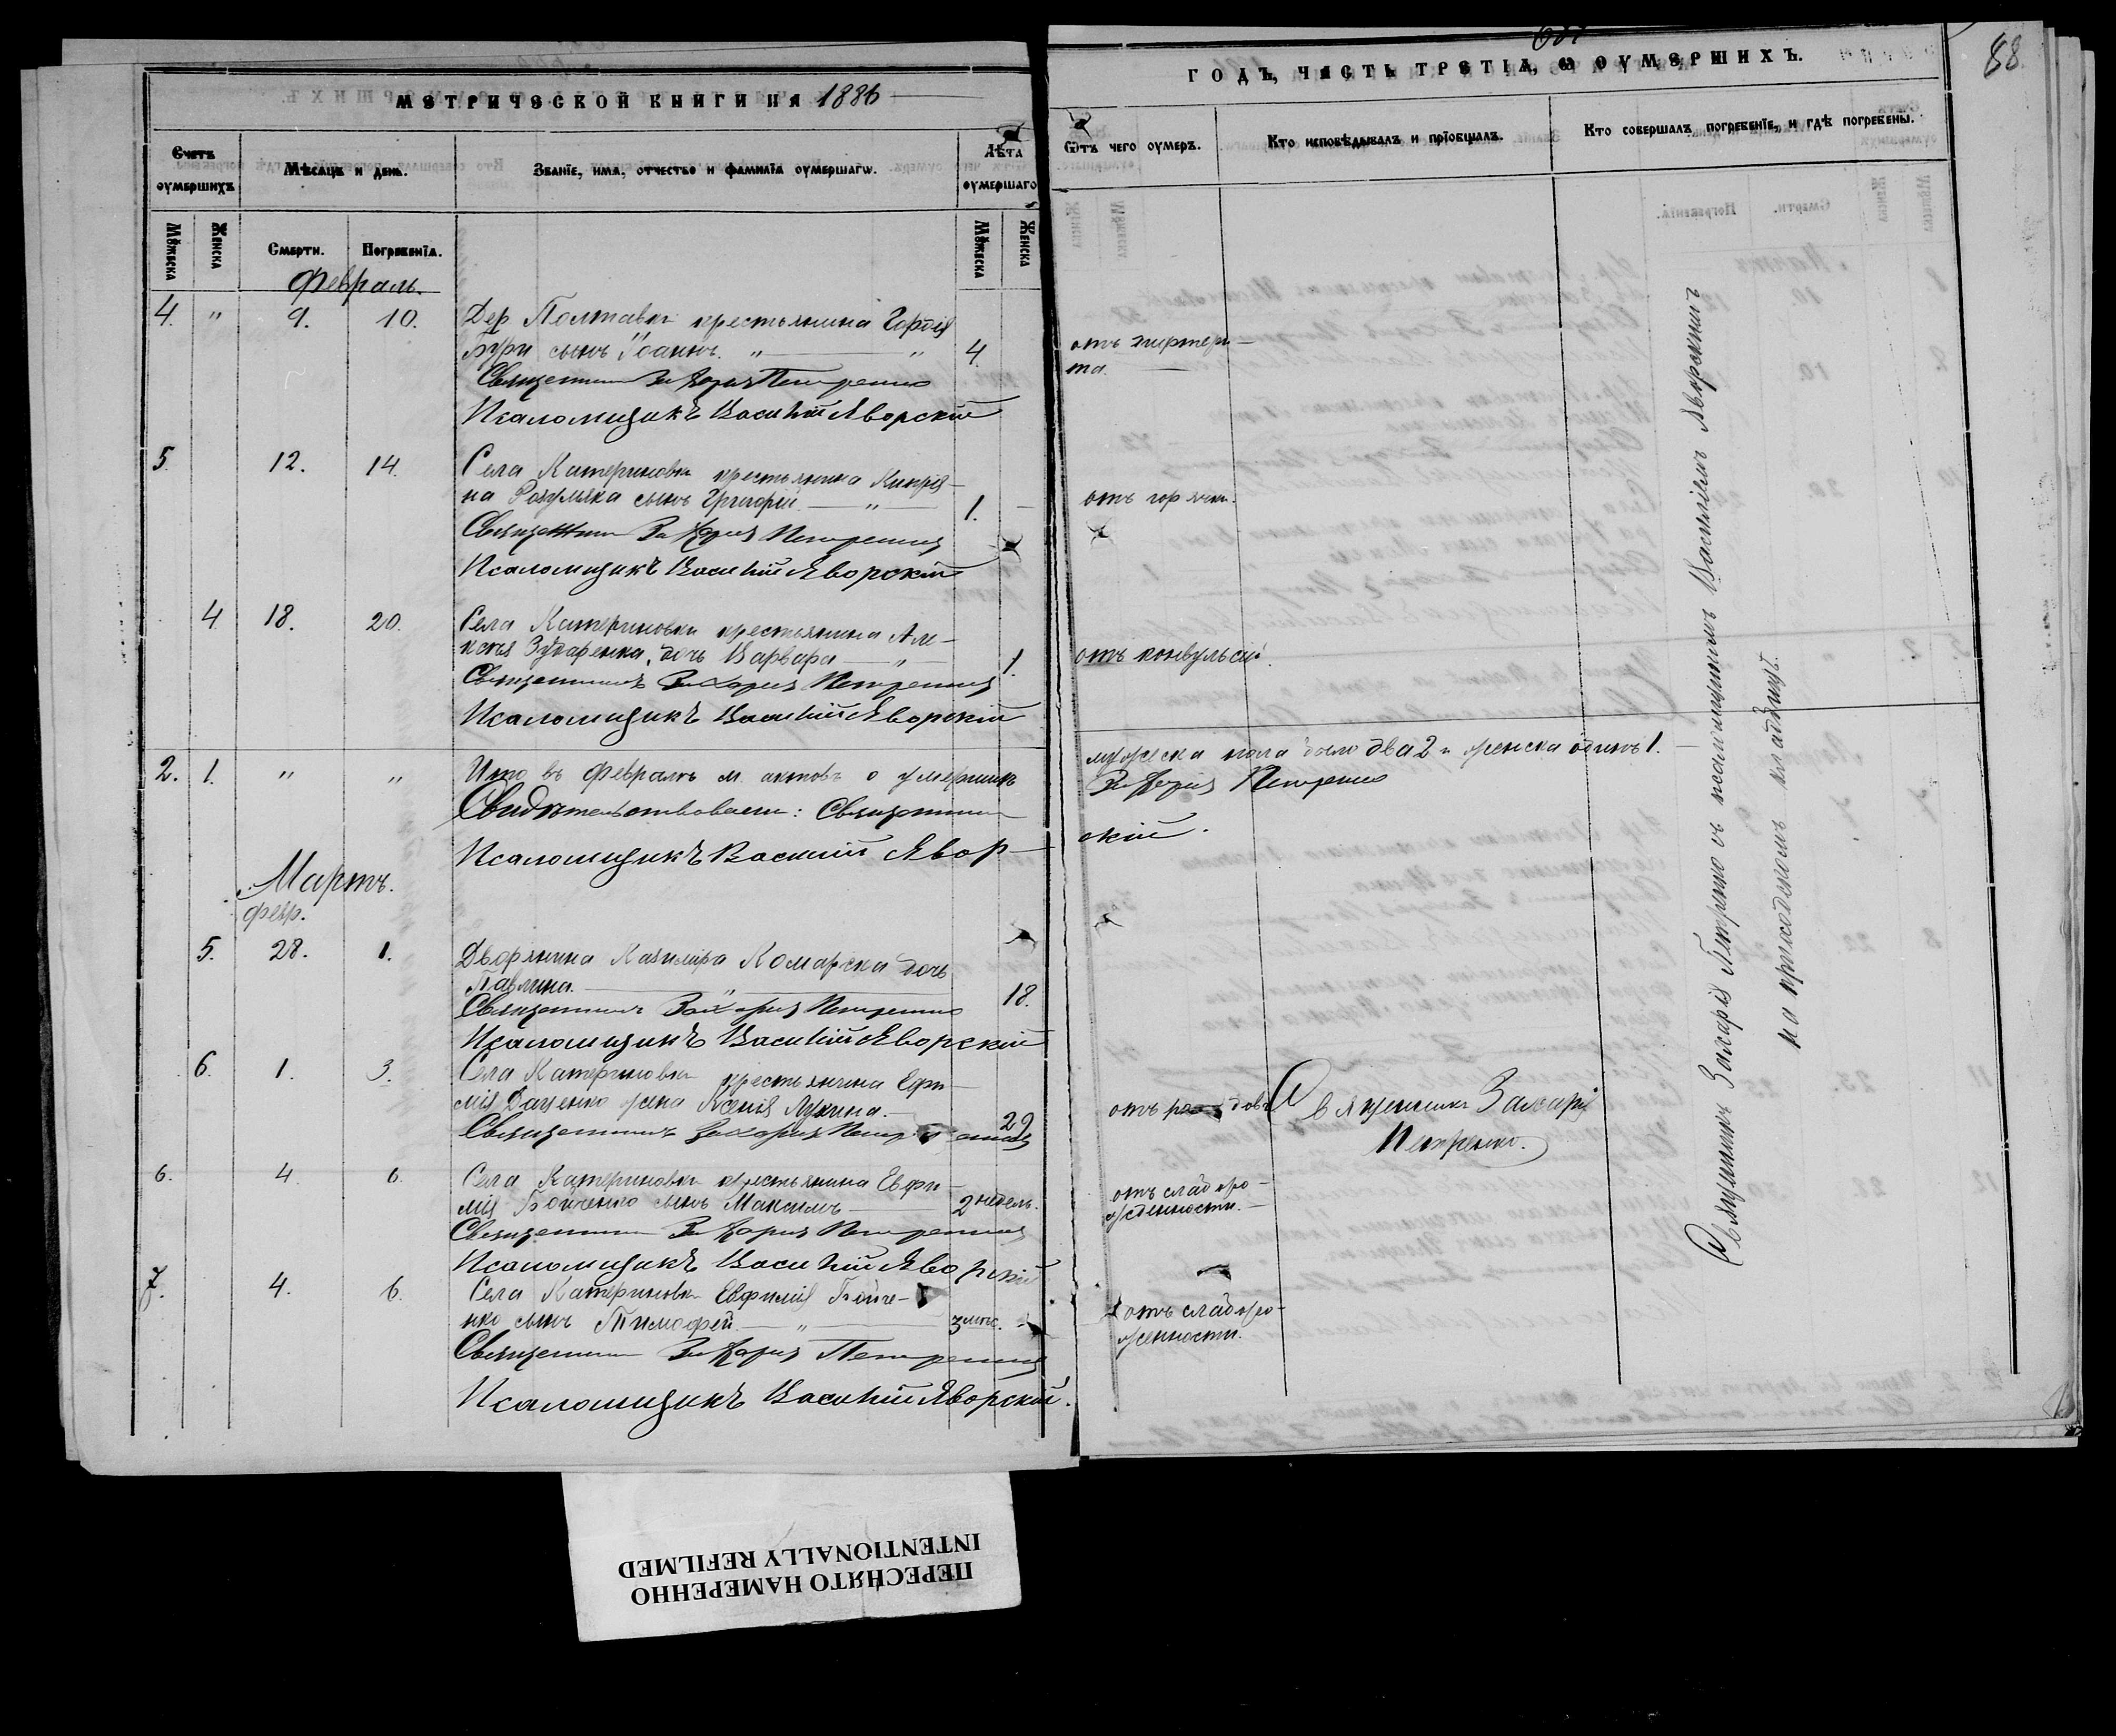 МЕТРИЧЕСКОЙ КНИГИ НА 1886
Счетъ оумершихъ
Мѣсяцъ и день.
Званїе, имя, отчество и фамилїя оумершагѡ.
Лѣта оумершаго
Мꙋжеска
Женска
Смерти.
Погребенїя.
Мꙋжеска
Женска
Февраль.
4. " 9. 10. Дер Полтавки крестьянина Гордія
сынъ Іоаннъ. " " 4.
Священникъ Захарія Петренко
Псаломщикъ Василій Яворскій
5. 12. 14. Села Катериновки крестьянина Кипрія-
на Розумяка сынъ Григорій " 1.
Священникъ Захарія Петренко
Псаломщикъ Василій Яворскій
4. 18. 20. Села Катериновки крестьянина Але-
ксѣя дочь Варвара " 1.
Священникъ Захарія Петренко
Псаломщикъ Василій Яворскій
2. 1. " " Итого въ Февралѣ м. актовъ о умершихъ
Свидѣтельствовали: Священникъ
Псаломщикъ Василій Явор-
Мартъ.
февр.
5. 28. 1. Дворянина Казиміра Комарска дочь
Павлина. " 18.
Священникъ Захарія Петренко
Псаломщикъ Василій Яворскій
6. 1. 3. Села Катериновки крестьянина Ефи-
мія Даценко жена Ксенія Лукина. 29
Священникъ Захарія Петренко
6. 4. 6. Села Катериновки крестьянина Евфи-
мія Бойченко сынъ Максимъ 2 недѣль.
Священникъ Захарія Петренко
Псаломщикъ Василій Яворскій
7. 4. 6. Села Катериновки Евфимія Бойче-
нко сынъ Тимофей " 3
Священникъ Захарія Петренко
Псаломщикъ Василій Яворскій.
88
ГОДЪ, ЧАСТЬ ТРЕТІѦ, Ѡ ОУМЕРШИХЪ.
Ѿтъ чего оумеръ.
Кто исповѣдывалъ и прїобщалъ.
Кто совершалъ погребенїе, и гдѣ погребены.
отъ дифтери-
та.
отъ горячки.
отъ конвульсій.
мужеска пола было два 2 и женска одинъ 1.
Захарія Петренко
скій.
отъ родовъ
Священникъ Захарія
Петренко.
отъ слаборо-
жденности.
отъ слаборо-
женности.
Священникъ Захарія Петренко съ псаломщикомъ Василіемъ Яворскимъ
на приходскомъ кладбищѣ.
ПЕРЕСНЯТО НАМЕРЕННО
INTENTIONALLY REFILMED